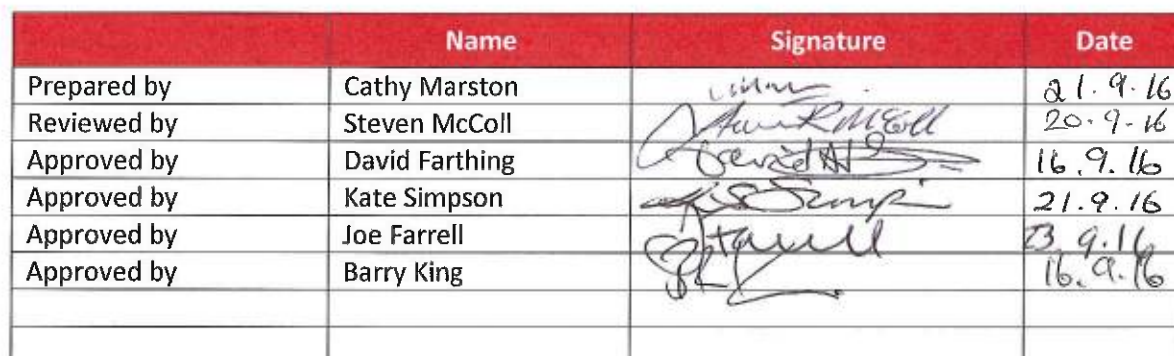 Name Signature Date
Prepared by Cathy Marston 21.9.16
Reviewed by Steven McColl Steven R McColl 20.9.16
Approved by David Farthing David 16.9.16
Approved by Kate Simpson K Simpson 21.9.16
Approved by Joe Farrell J Farrell 23.9.16
Approved by Barry King 16.9.16